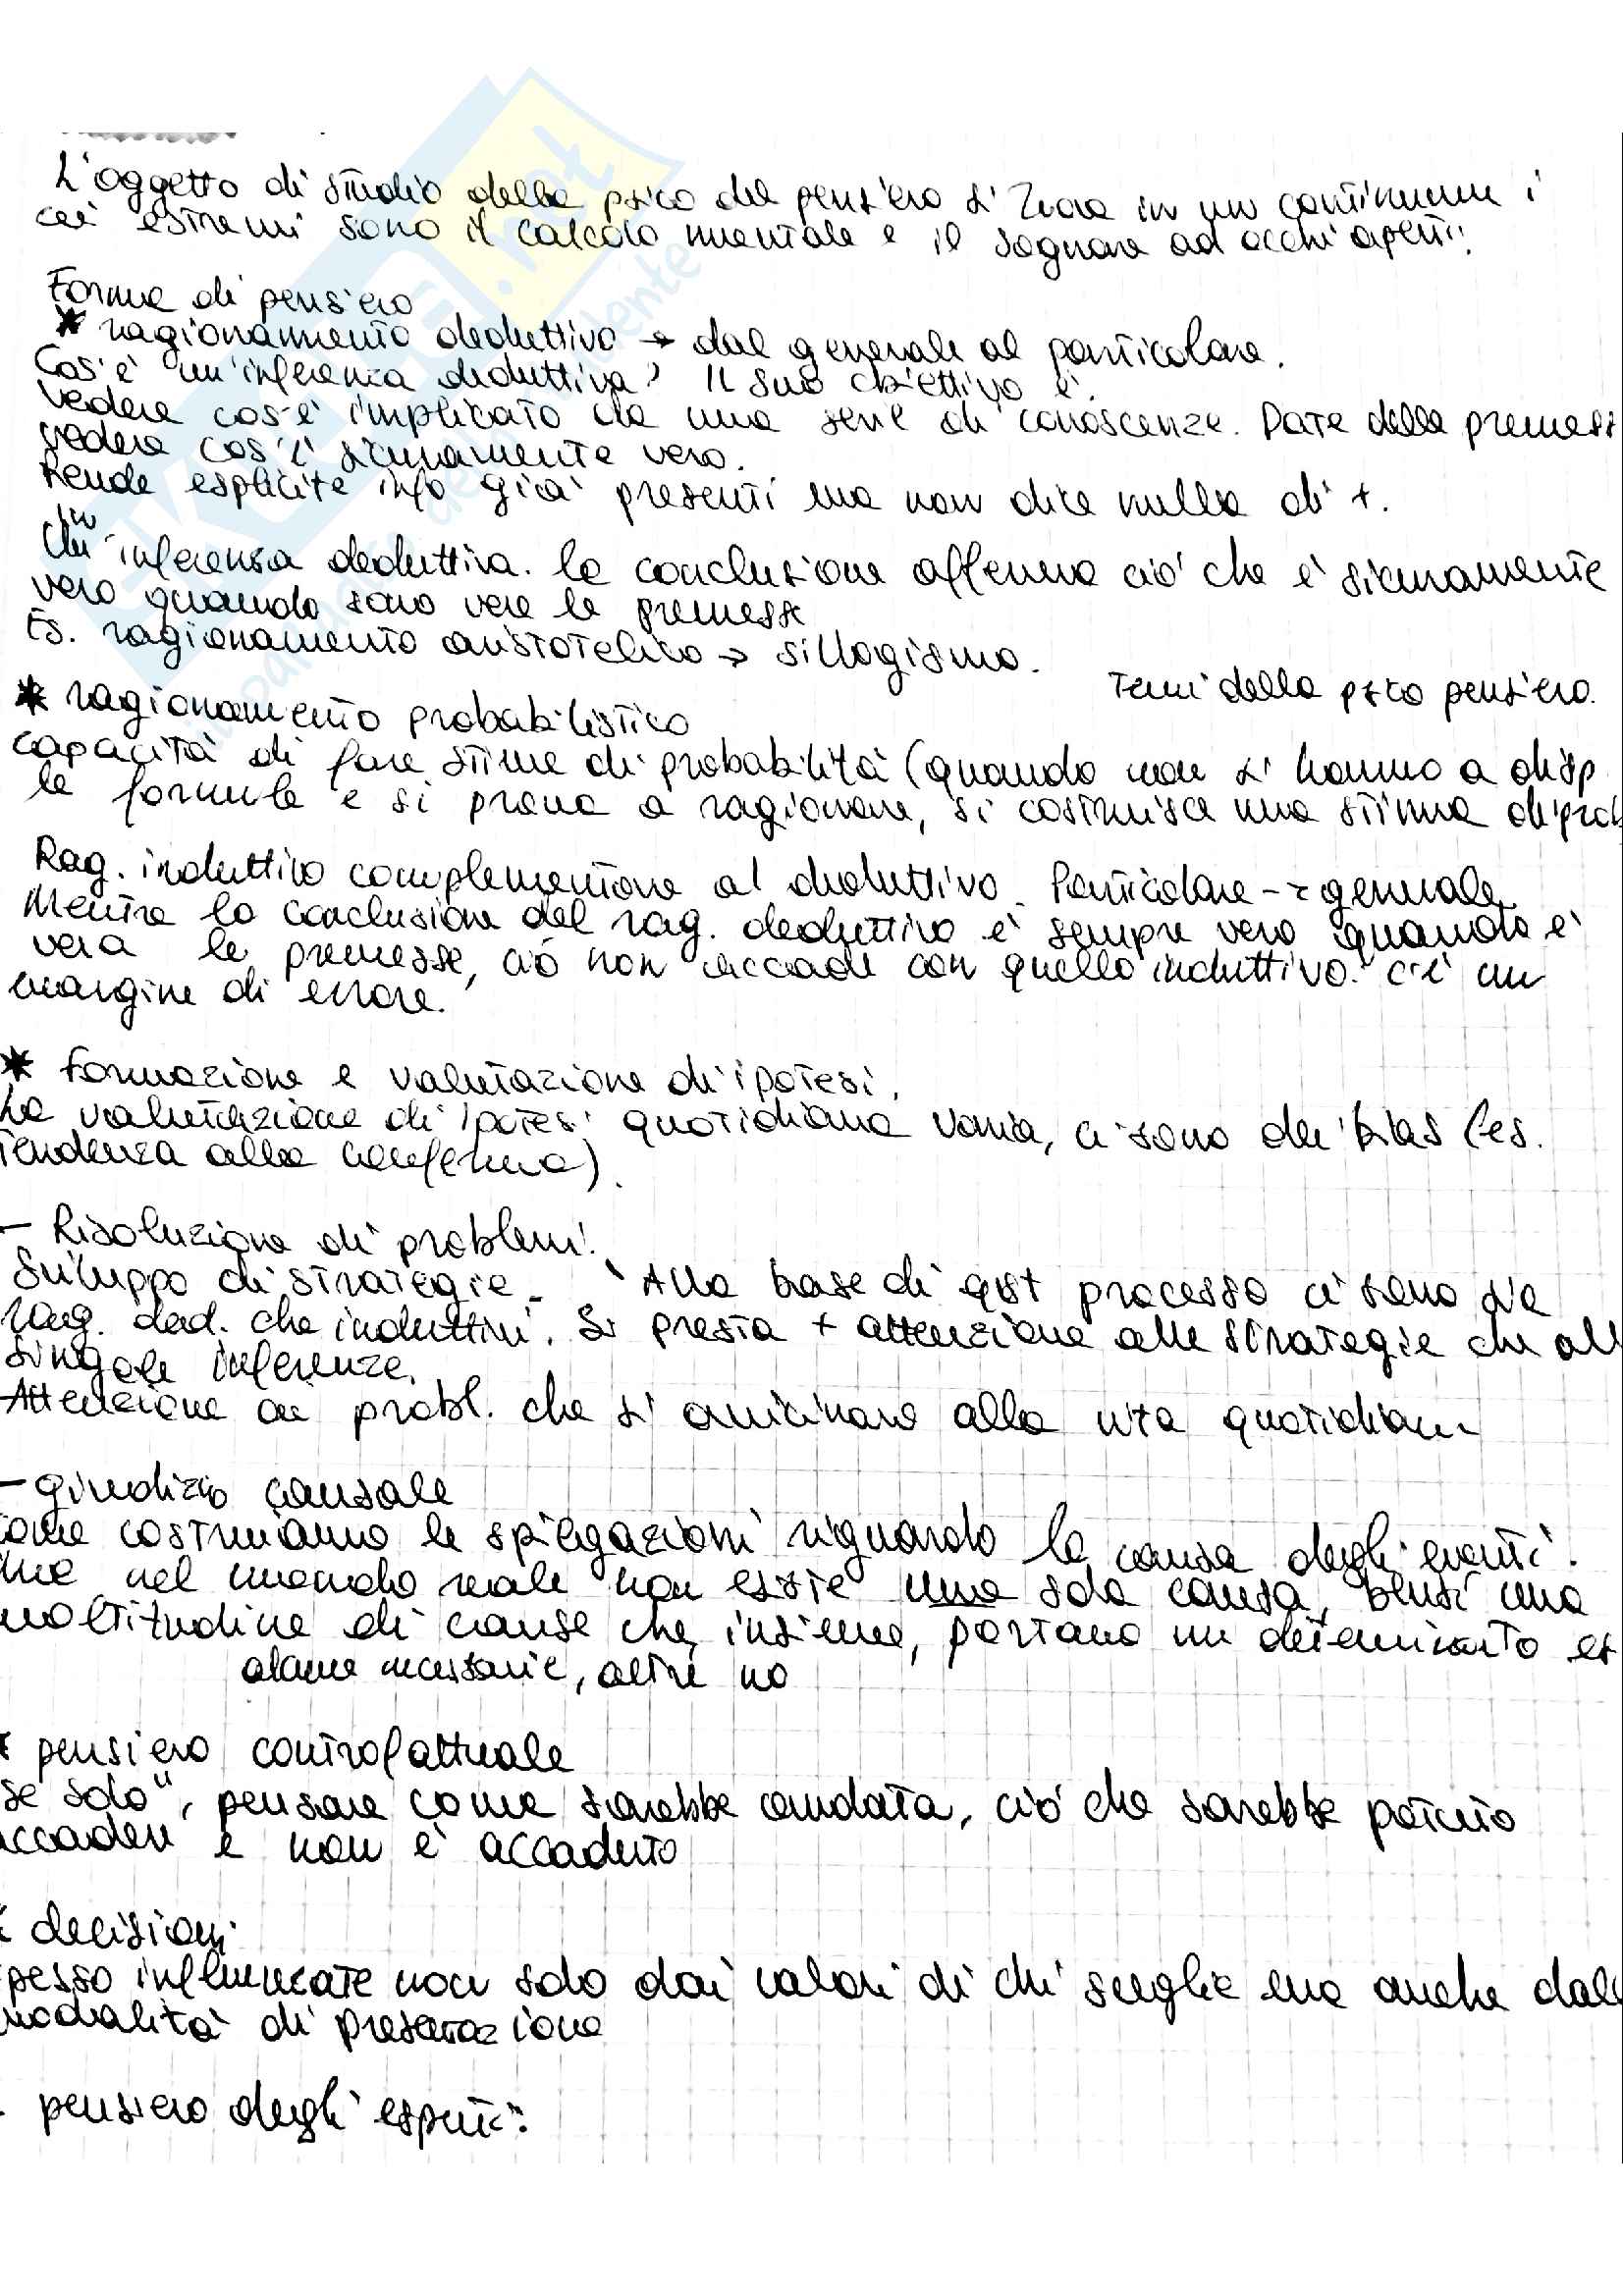 L'oggetto di studio della psico del pensiero si trova in un continuum i
cui estremi sono il calcolo mentale e il sognare ad occhi aperti.
Forme di pensiero
* ragionamento deduttivo → dal generale al particolare.
Cos'è un'inferenza deduttiva? Il suo obiettivo è
vedere cos'è implicato da una serie di conoscenze. Date delle premess
vedere cos'è sicuramente vero.
Rende esplicite info già presenti ma non dice nulla di +.
In
un'inferenza deduttiva. la conclusione afferma ciò che è sicuramente
vero quando sono vere le premesse
Es. ragionamento aristotelico → sillogismo.
Temi della psico pensiero.
* ragionamento probabilistico
capacità di fare stime di probabilità (quando non si hanno a disp
le formule e si prova a ragionare, si costruisce una stima di prob
Rag. induttivo complementare al deduttivo. Particolare → generale
Mentre la conclusione del rag. deduttivo è sempre vera quando è
vera le premesse, ciò non accade con quello induttivo. c'è un
margine di errore.
* Formazione e valutazione di ipotesi.
La valutazione di ipotesi quotidiana varia, ci sono dei bias (es.
tendenza alla conferma).
- Risoluzione di problemi.
Sviluppo di strategie. Alla base di qst processo ci sono sia
rag. ded. che induttivi. Si presta + attenzione alle strategie che all
singole inferenze.
Attenzione ai probl. che si avvicinano alla vita quotidiana
- giudizio causale
come costruiamo le spiegazioni riguardo la causa degli eventi.
ma nel mondo reale non esiste una sola causa, bensì una
moltitudine di cause che, insieme, portano un determinato es
alcune necessarie, altre no
* pensiero controfattuale
se solo", pensare come sarebbe andata, ciò che sarebbe potuto
accadere e non è accaduto
* decisioni
pesso influenzate non solo dai valori di chi sceglie ma anche dall
modalità di presentazione
- pensiero degli esperti.